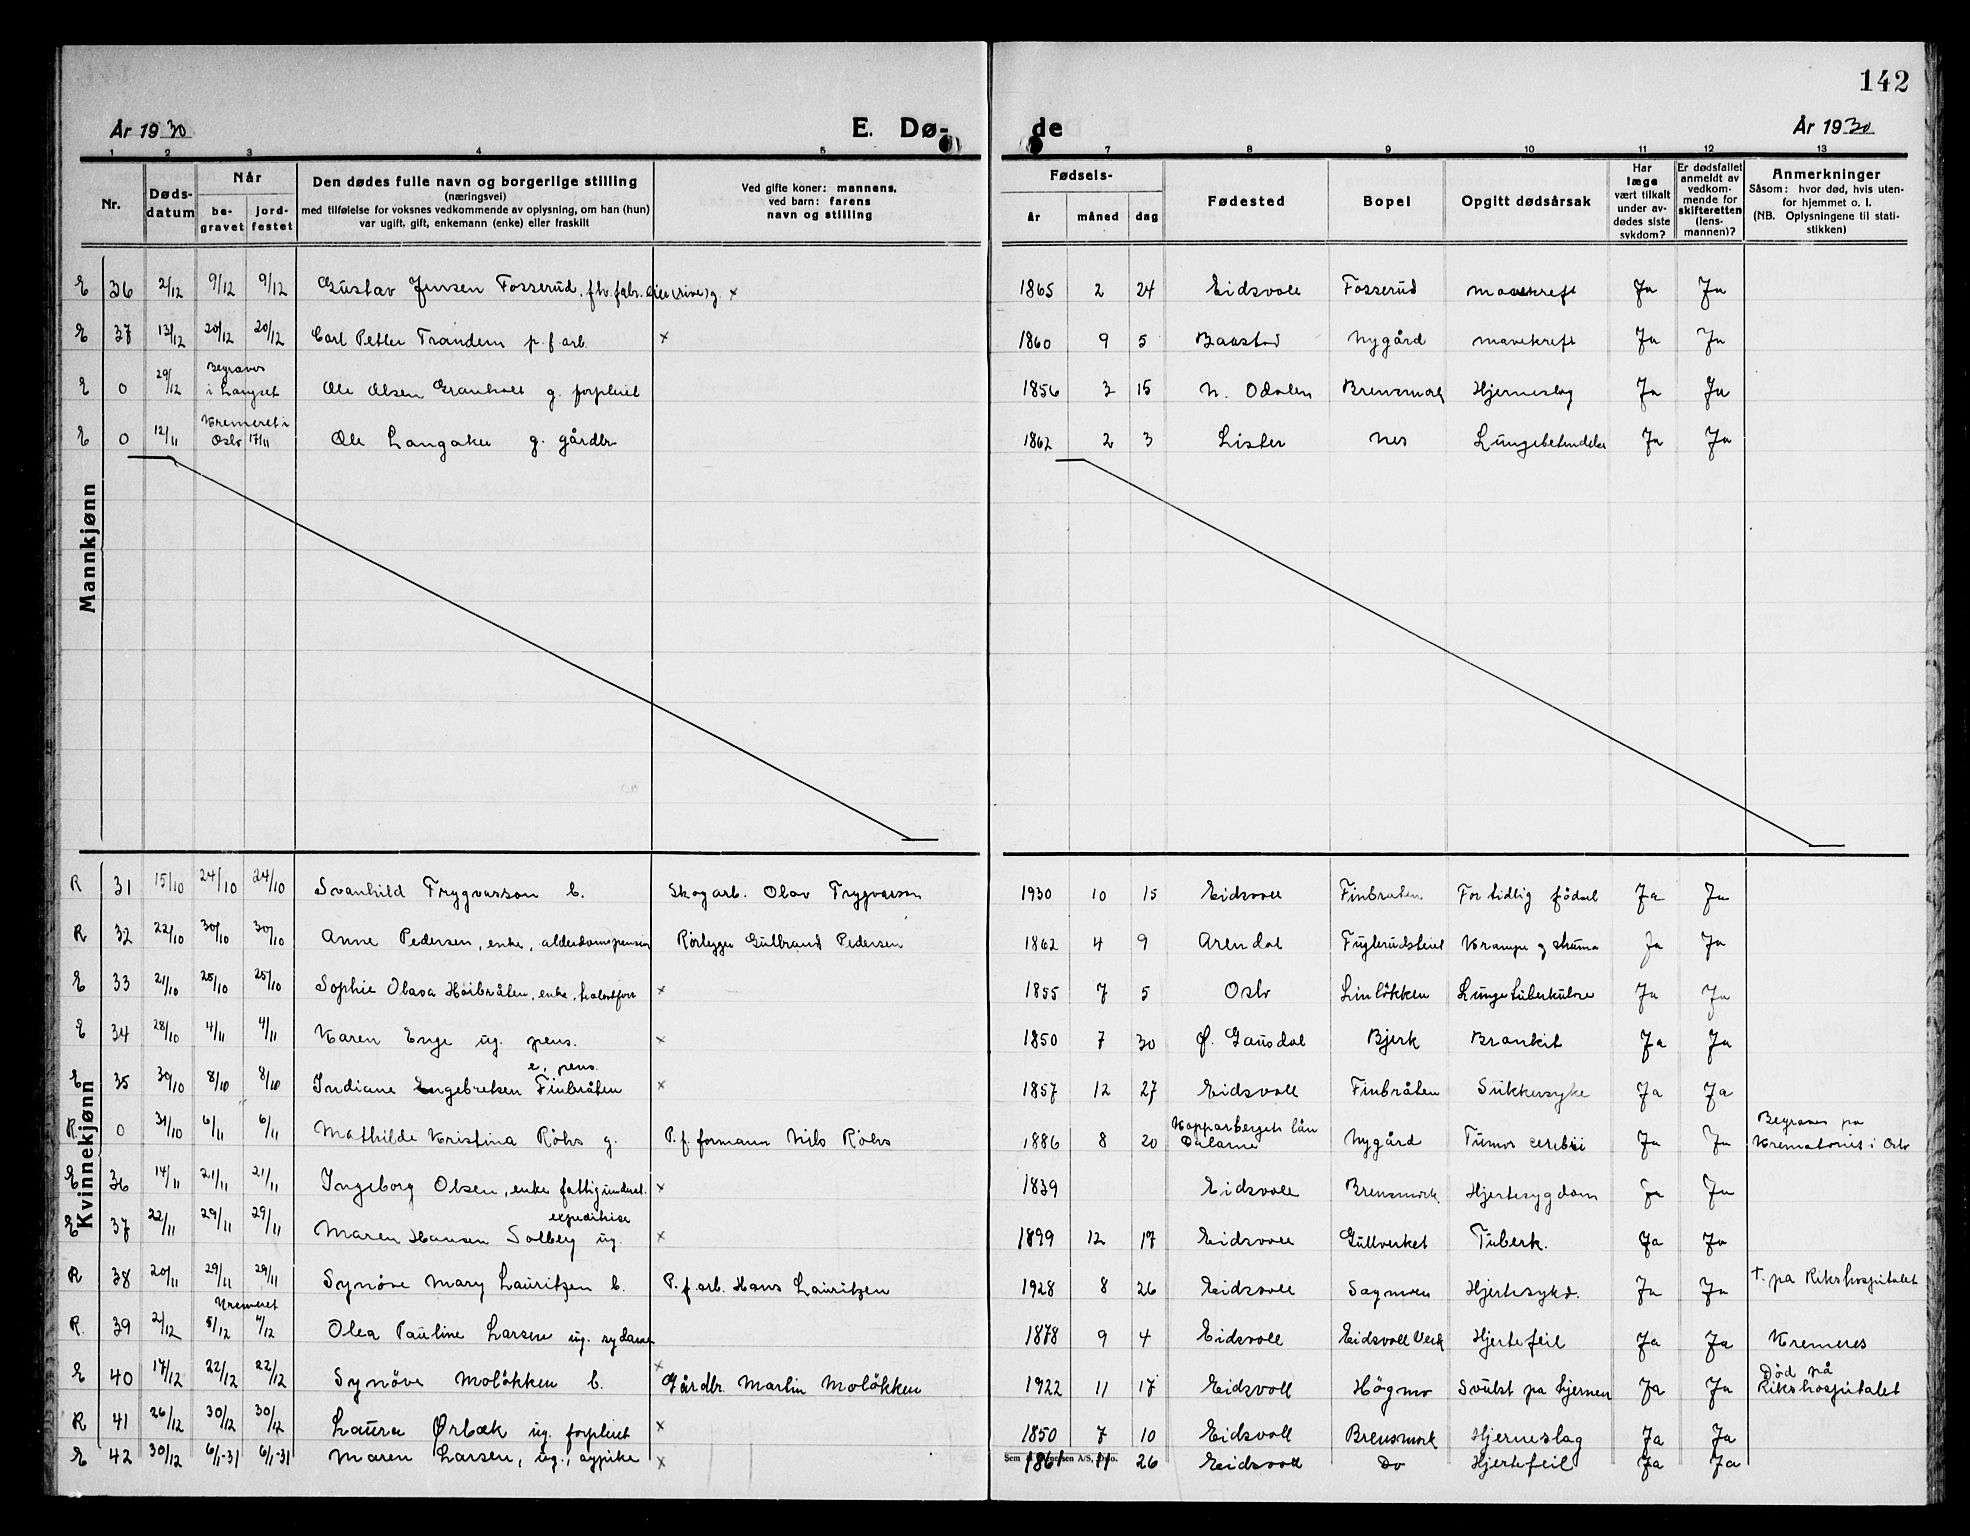 142
År 1930 E. Dø- de År 1930
1 2 3 4 5 7 8 9 10 11 12 13
Nr. Døds-datum Når be-gravet jord-festet Den dødes fulle navn og borgerlige stilling (næringsvei) med tilføielse for voksnes vedkommende av oplysning, om han (hun) var ugift, gift, enkemann (enke) eller fraskilt Ved gifte koner: mannens, ved barn: farens navn og stilling Fødsels- år måned dag Fødested Bopel Opgitt dødsårsak Har læge vært tilkalt under av-dødes siste sykdom? Er dødsfallet anmeldt av vedkom-mende for skifteretten (lens-mannen)? Anmerkninger Såsom: hvor død, hvis uten-for hjemmet o. l. (NB. Oplysningene til stati-stikken)
Mannkjønn
E 36 2/12 9/12 9/12 Gustav Jensen Fosserud, fhv. fabr. eier (rive) g x 1865 2 24 Eidsvoll Fosserud mavekreft Ja Ja
E 37 13/12 20/12 20/12 Carl Petter Trandem p. f arb. x 1860 9 5 Baastad Nygård mavekreft Ja Ja
E 0 29/12 Begraves i Langset Ole Olsen Granholt g. forpleiet 1856 3 15 N. Odalen Brensmork Hjerneslag Ja Ja
E 0 12/11 Kremeret i Oslo 17/11 Ole Langaker g. gårdbr 1862 2 3 Lister Nes Lungebetendelse Ja Ja
Kvinnekjønn
R 31 15/10 24/10 24/10 Svanhild Trygvasson b. Skogarb. Olav Trygvasson 1930 10 15 Eidsvoll Finbråten For tidlig fødsel Ja Ja
R 32 22/10 30/10 30/10 Anne Pedersen, enke, alderdomspensjon Rørlegger Gulbrand Pedersen 1862 4 9 Arendal Fuglerudsteiet Krampe g struma Ja Ja
E 33 21/10 25/10 25/10 Sophie Olava Høibråten, enke, x 1855 7 5 Oslo Linløkken Lungetuberkulose Ja Ja
E 34 28/10 4/11 4/11 Karen Enge ug. pens. x 1850 7 30 Ø. Gausdal Bjerk Bronkit Ja Ja
E 35 30/10 8/10 8/10 Indiane Engebretsen Finbråten e. pens. x 1857 12 27 Eidsvoll Finbråten Sukkersyke Ja Ja
R. 0 31/10 6/11 6/11 Mathilde Kristina Røhs g. P. f. formann Nils Røhs 1886 8 20 Kopparbergets län Dalarne Nygård Tumor cerebri Ja Ja Begraves på Krematoriet i Oslo
E 36 14/11 21/11 21/11 Ingeborg Olsen, enke fattigunderst. x 1839 Eidsvoll Brensmork Hjertesygdom Ja Ja
E 37 22/11 29/11 29/11 Maren Hansen Solberg ug. expeditrise x 1899 12 17 Eidsvoll Gullverket Tuberk. Ja Ja
R 38 20/11 29/11 29/11 Synøve Mary Lauritzen b. P. f. arb. Hans Lauritzen 1928 8 26 Eidsvoll Sagmoen Hjertesykd. Ja Ja † på Rikshospitalet
R. 39 2/12 Kremeret 5/12 4/12 Olea Pauline Larsen ug. sydame x 1878 9 4 Eidsvoll Eidsvoll Verk Hjertefeil Ja Ja Kremeres
E 40 17/12 22/12 22/12 Synøve Moløkken b. Gårdbr. Martin Moløkken 1922 11 17 Eidsvoll Høgmo Svulst på hjernen Ja Ja Død på Rikshospitalet
R 41 26/12 30/12 30/12 Laura Ørbæk ug. forpleiet x 1850 7 10 Eidsvoll Brensmork Hjerneslag Ja Ja
E 42 30/12 6/1-31 6/1-31 Maren Larsen, ug., sypike x 1861 11 26 Eidsvoll Do Hjertefeil Ja Ja